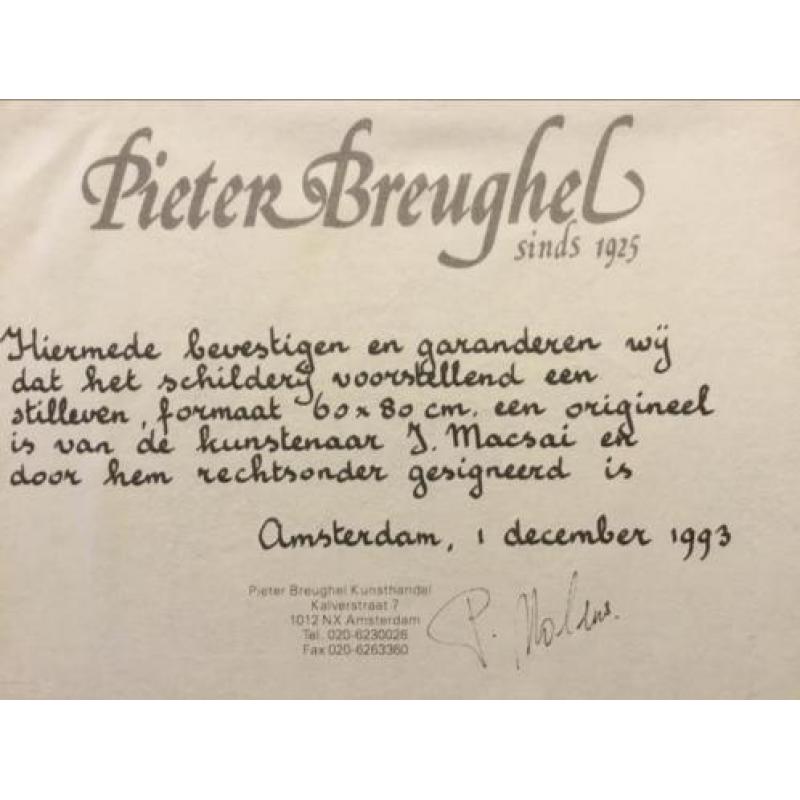 Pieter Breughel
sinds 1925
Hiermede bevestigen en garanderen wij
dat het schilderij voorstellend een
stilleven, formaat 60 x 80 cm. een origineel
is van de kunstenaar J. Macsai en
door hem rechtsonder gesigneerd is
Amsterdam, 1 december 1993
Pieter Breughel Kunsthandel
Kalverstraat 7
1012 NX Amsterdam
Tel. 020-6230026
Fax 020-6263360
P.